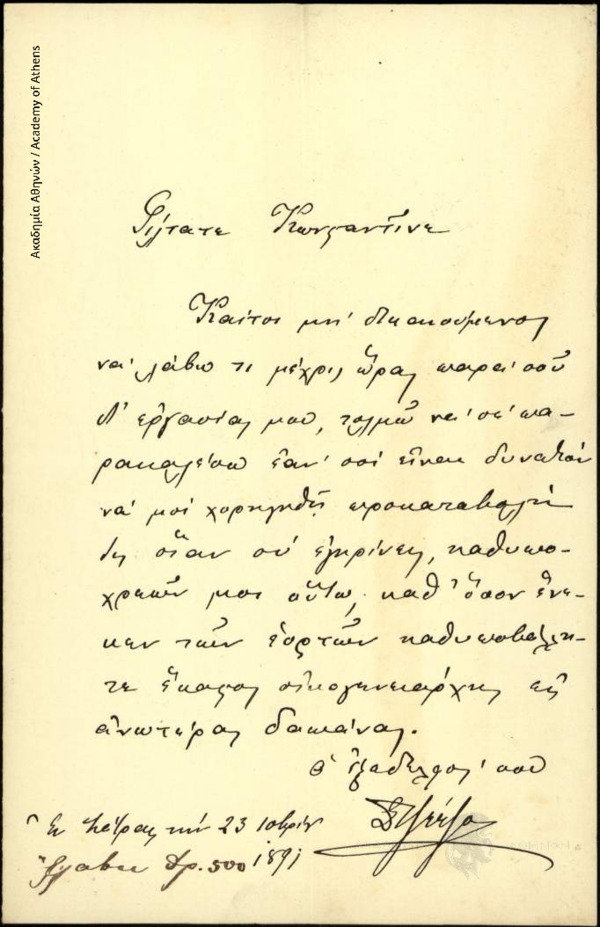 Ακαδημία Αθηνών / Academy of Athens
Φίλτατε Κωνσταντῖνε
Καίτοι μὴ δικαιούμενος
νὰ λάβω τι μέχρις ὥρας παρὰ σοῦ
δι' ἐργασίας μου, τολμῶ νὰ σὲ πα-
ρακαλέσω ἐὰν σοὶ εἶναι δυνατὸν
νὰ μοὶ χορηγηθῇ προκαταβολή
τις οἵαν σὺ ἐγκρίνεις, καθυπο-
χρεῶν με οὕτω, καθ' ὅσον ἕνε-
κεν τῶν ἑορτῶν καθυποβάλλε-
ται ἕκαστος οἰκογενειάρχης εἰς
ἀνωτέρας δαπάνας.
Ὁ ἐξάδελφός σου
Ἐν Πάτραις τὴν 23
ἔλαβα δρ. 500 1891